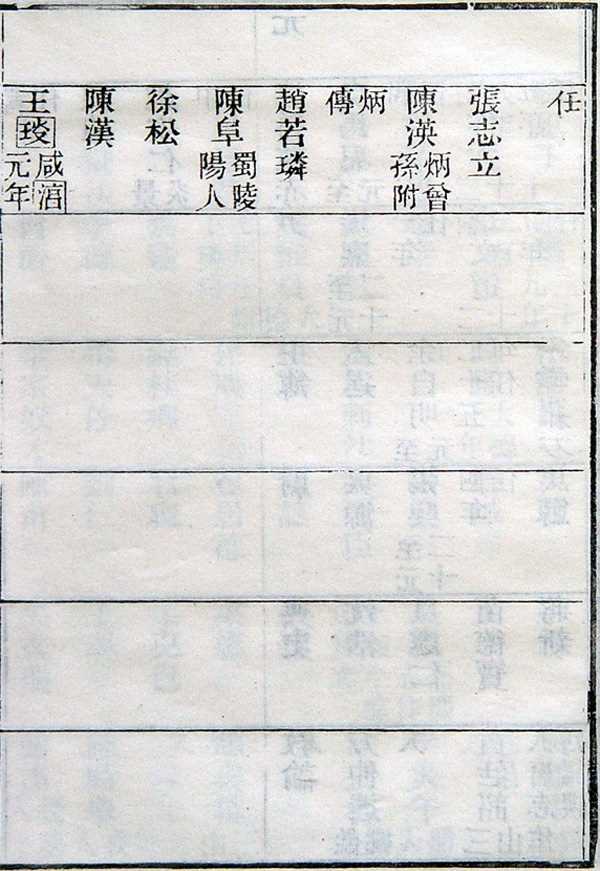 任
張志立
陳渶炳曾孫附
炳傳
趙若璘
陳阜蜀陵陽人
徐松
陳漢
王琰咸湻元年